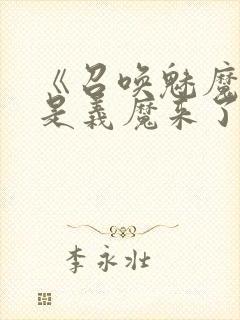 《召唤魅魔
是义魔来了
李永壮